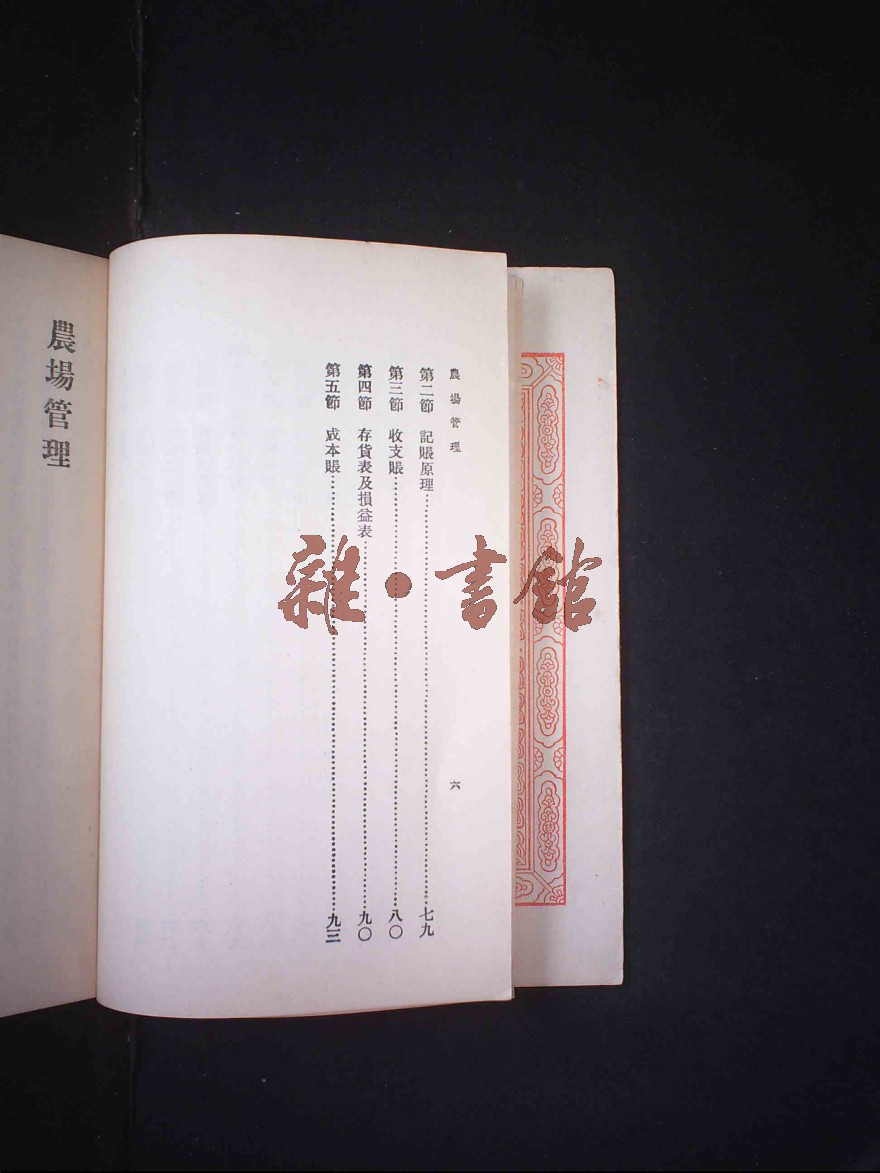 農場管理
六
第二節　記賬原理……七九
第三節　收支賬……八〇
第四節　存貨表及損益表……九〇
第五節　成本賬……九三
農場管理
雜•書館